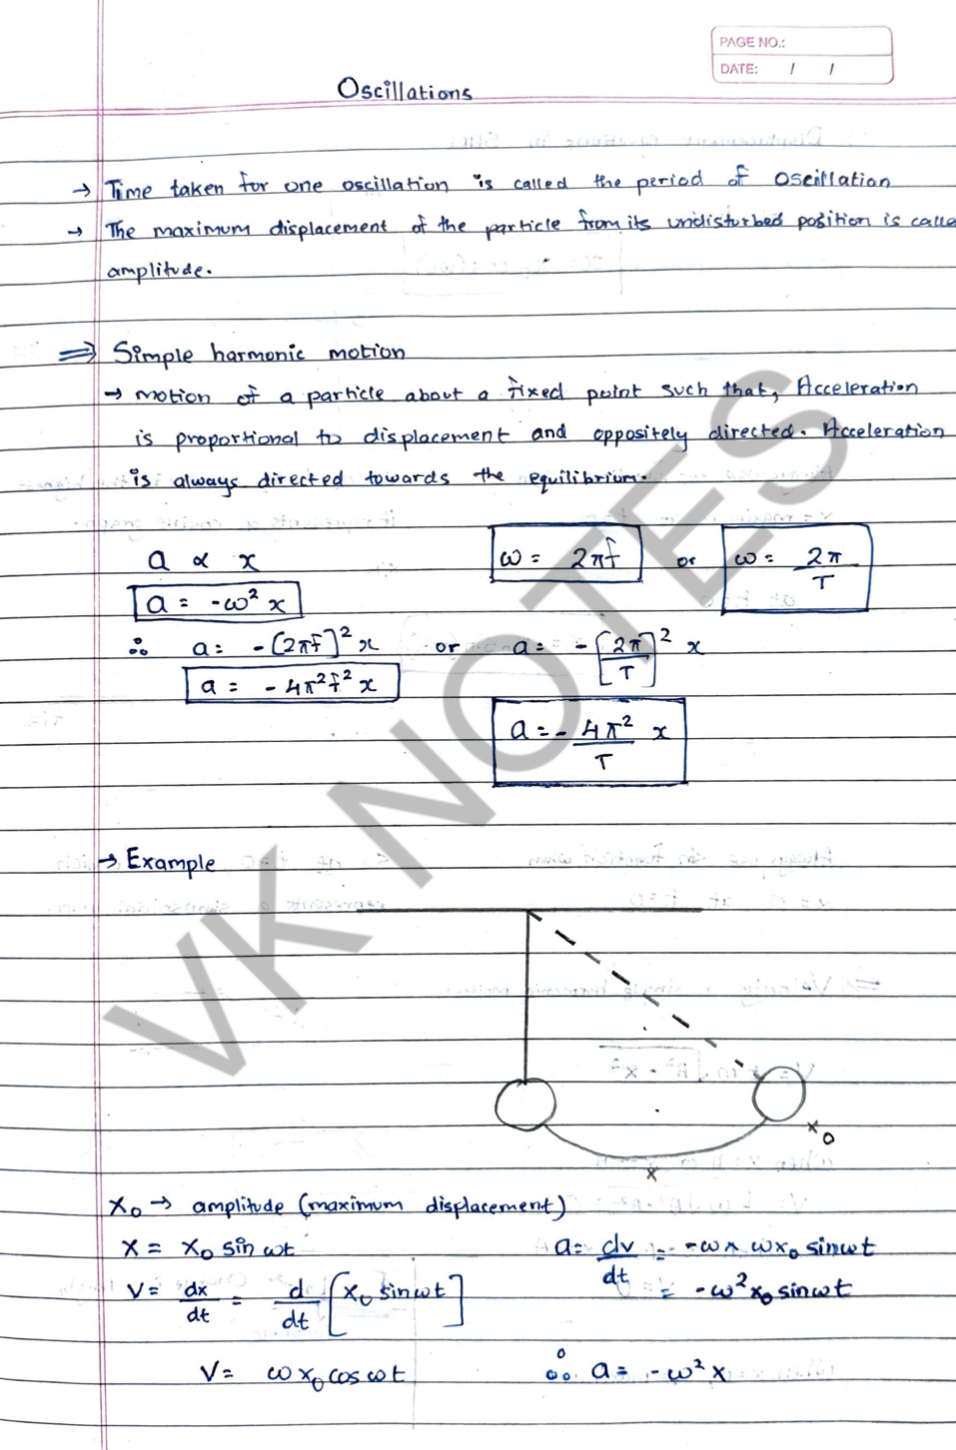 PAGE NO.:
DATE: / /
Oscillations
→ Time taken for one oscillation is called the period of oscillation
→ The maximum displacement of the particle from its undisturbed position is calle
amplitude.
⇒ Simple harmonic motion
→ motion of a particle about a fixed point such that, Acceleration
is proportional to displacement and oppositely directed. Acceleration
is always directed towards the equilibrium.
a ∝ x
ω = 2πf or ω = 2π/T
a = -ω² x
∴ a = -[2πf]² x or a = -[2π/T]² x
a = -4π²f² x
a = -4π²/T x
→ Example
x₀
x
x₀ → amplitude (maximum displacement)
x = x₀ sin ωt
v = dx/dt = d/dt [x₀ sin ωt]
v = ωx₀ cos ωt
a = dv/dt = -ω × ωx₀ sin ωt
= -ω² x₀ sin ωt
∴ a = -ω² x
VK NOTES